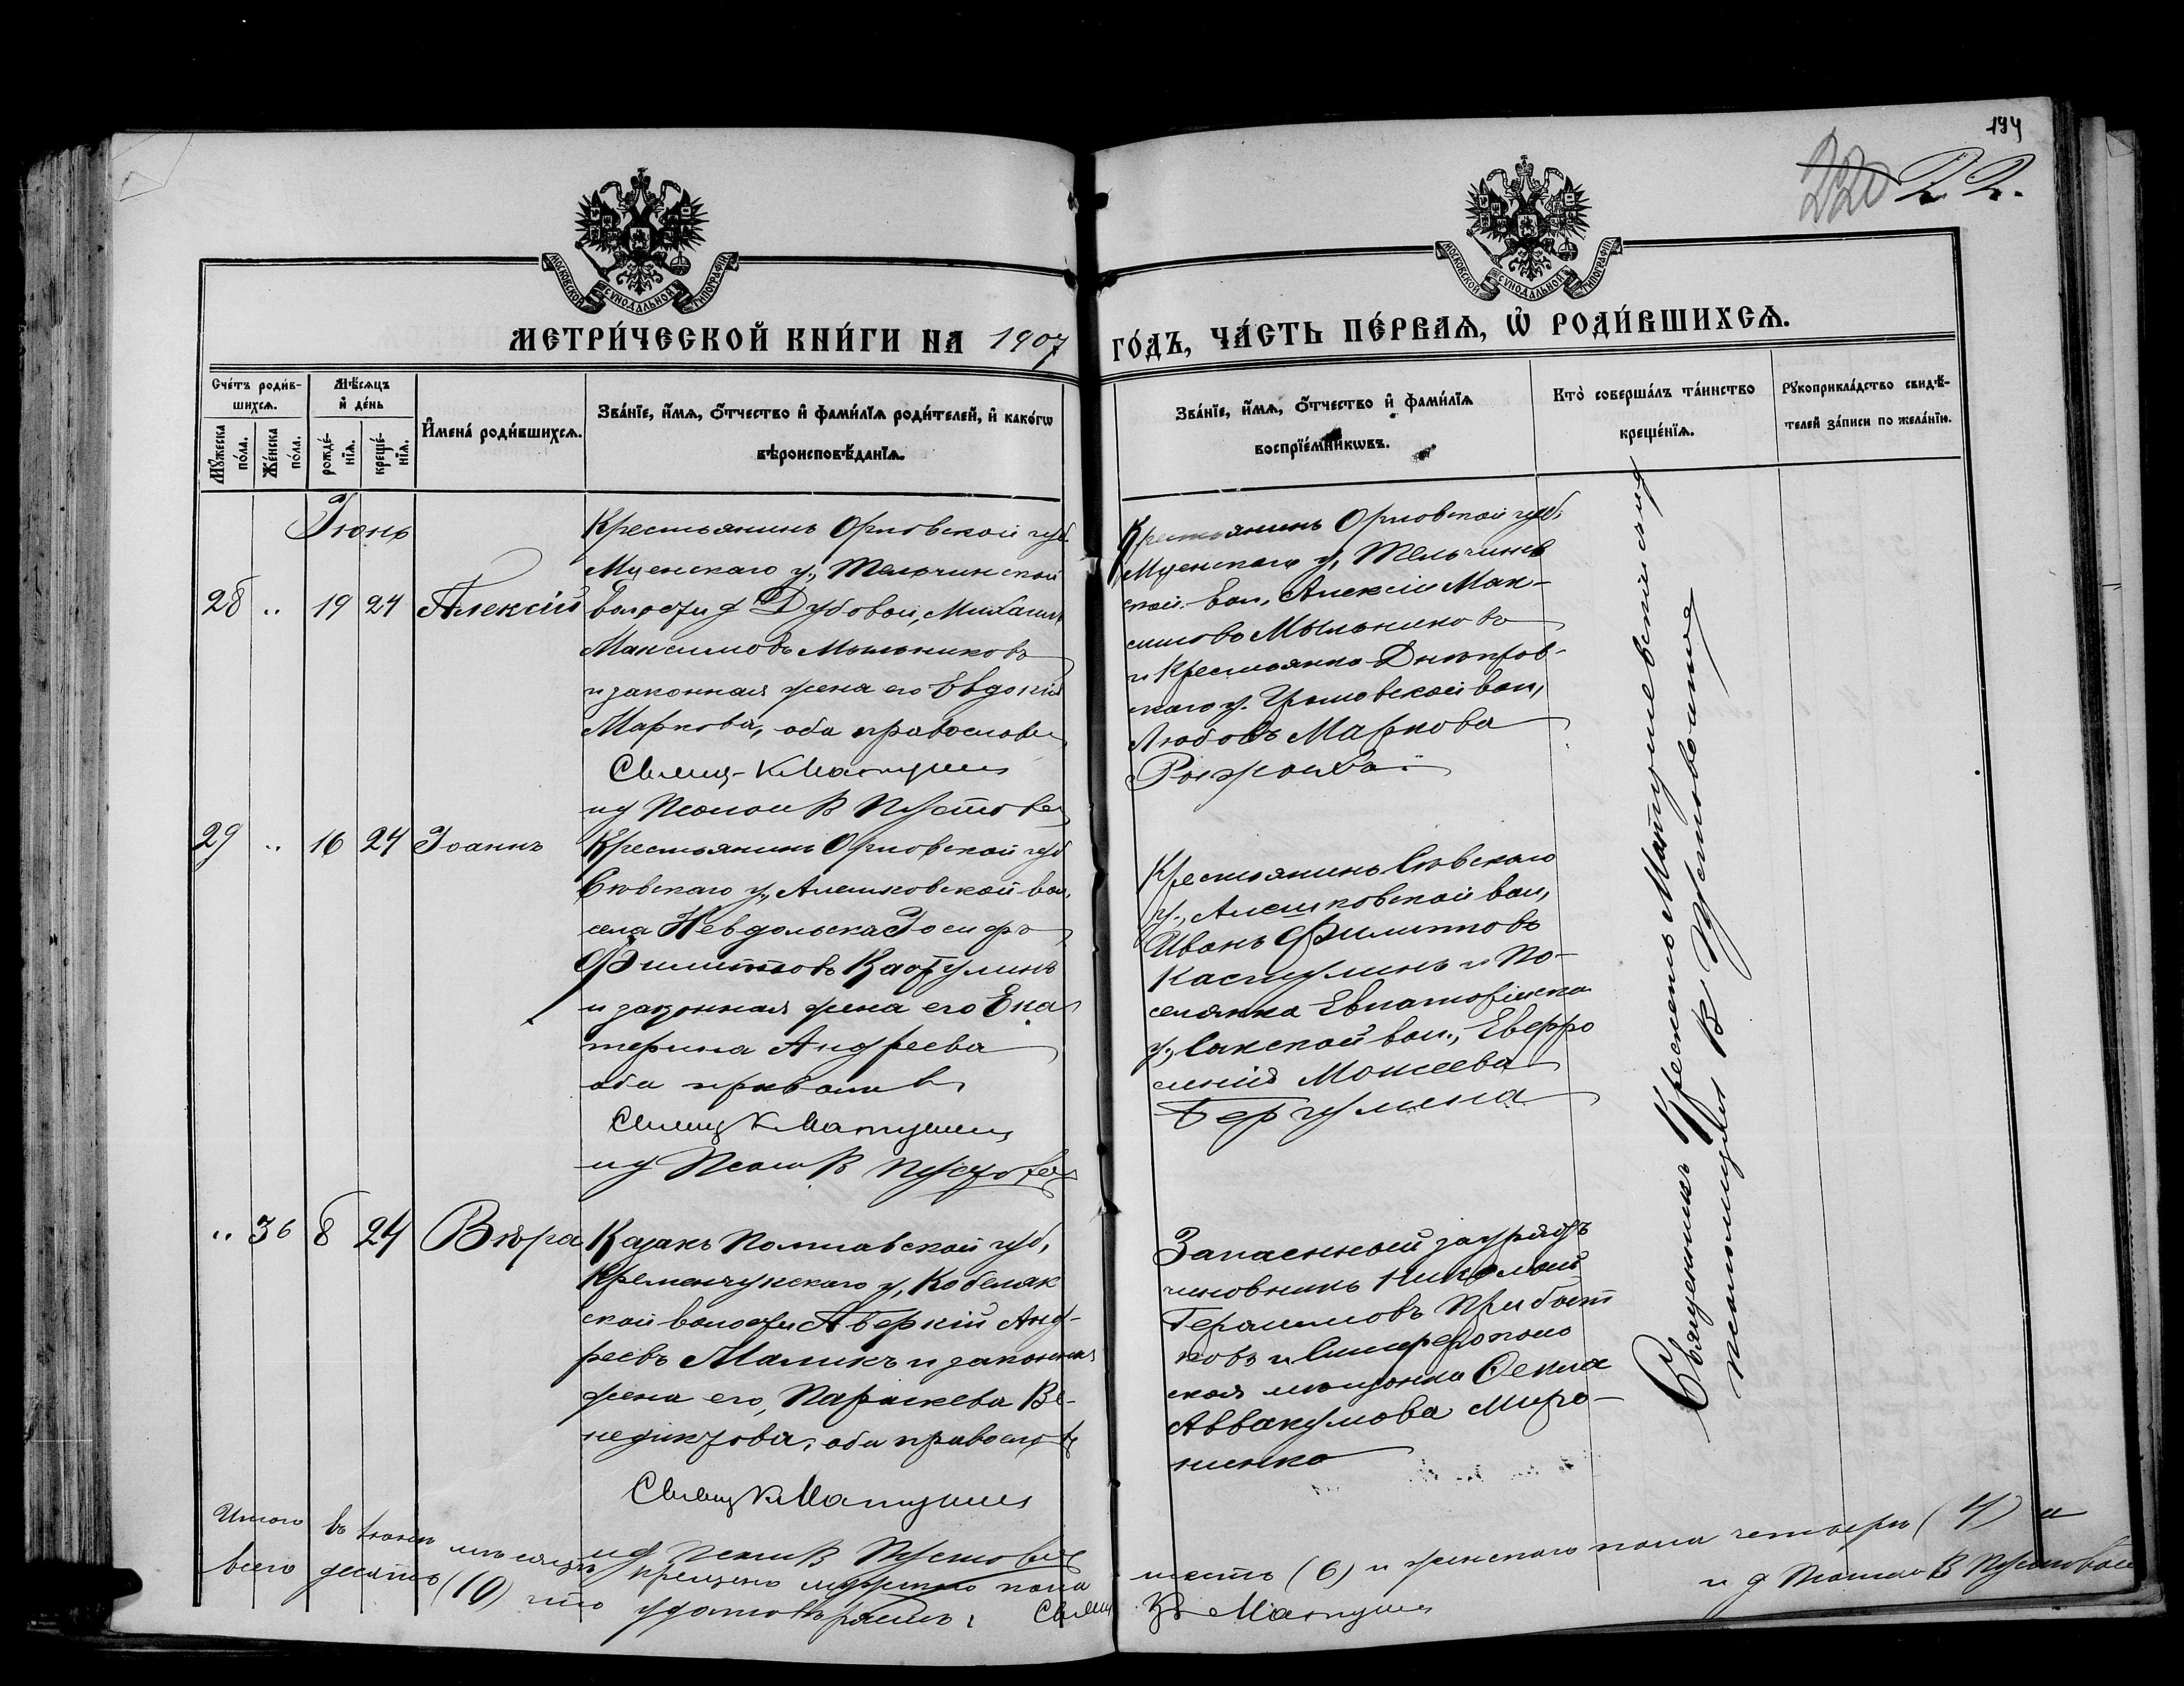 194
220 22.
МОСКОВСКОЙ СѴНОДАЛЬНОЙ ТИПОГРАФІИ
МОСКОВСКОЙ СѴНОДАЛЬНОЙ ТИПОГРАФІИ
МЕТРИ́ЧЕСКОЙ КНИ́ГИ НА 1907 ГО́ДЪ, ЧА́СТЬ ПЕ́РВАѦ, Ѡ҆ РОДИ́ВШИХСѦ.
Сче́тъ роди́в-
шихсѧ.
Мꙋ́жеска
по́ла.
Же́нска
по́ла.
Мѣ́сѧцъ
и҆ де́нь
рожде́-
нїѧ.
креще́-
нїѧ.
И҆мена̀ роди́вшихсѧ.
Зва́нїе, и҆́мѧ, ѻ҆́тчество и҆ фами́лїѧ роди́телей, и҆ како́гѡ
вѣроисповѣ́данїѧ.
Зва́нїе, и҆́мѧ, ѻ҆́тчество и҆ фами́лїѧ
воспрїе́мникѡвъ.
Кто̀ соверша́лъ та́инство
креще́нїѧ.
Рꙋкоприкла́дство свидѣ́-
телей за́писи по жела́нїю.
Іюнь
28 " 19 24 Алексій
Крестьянинъ Орловской губ.
Мценскаго у., Тельчинской
волости д Дубовой, Михаилъ
Максимовъ Мыльниковъ
и законная жена его Евдокія
Маркова, оба православн
Свящ. К Матушев
ид Псалом В Пустовой
Крестьянинъ Орловской губ.
Мценскаго у, Тельчинов
ской вол, Алексій Мак-
симовъ Мыльниковъ
и Крестьянка Днѣпров-
скаго у. вол,
Любовь Маркова
29 " 16 24 Іоаннъ
Крестьянинъ Орловской губ
Сѣвскаго у, Алешковской вол,
села Невдольска Іосифъ
Филипповъ Кастулинъ
и законная жена его Ека
терина Андреева
оба православ
Свящ К Матушев
ид Псалом В Пустовой
Крестьянинъ Сѣвскаго
у., Алешковской вол,
Иванъ Филипповъ
Кастулинъ и По-
селянка Евпаторійска
у., Сакской вол., Евфро
синія Моисеева
Бергулина
" 36 8 24 Вѣра
Казакъ Полтавской губ,
Кременчугскаго у, Кобеляк
ской волости Аверкій Анд-
реевъ Маликъ и законная
жена его, Параскева Ве-
недиктова, оба православ
Свящ К Матушев
ид Псалом В Пустовой
Запасный заурядъ
чиновникъ Николай
Герасимовъ Прибыт
ковъ и Симферополь
ская мѣщанка Ѳекла
Аввакумова Миро-
ненко
Священникъ Матушевскій
псаломщикъ В Пустовойтов
Итого въ іюнѣ мѣсяцѣ крещено мужскаго пола шесть (6) и женскаго пола четыре (4) а
всего десять (10) что удостовѣряемъ: Свящ К Матушев и д Псалом В Пустовой